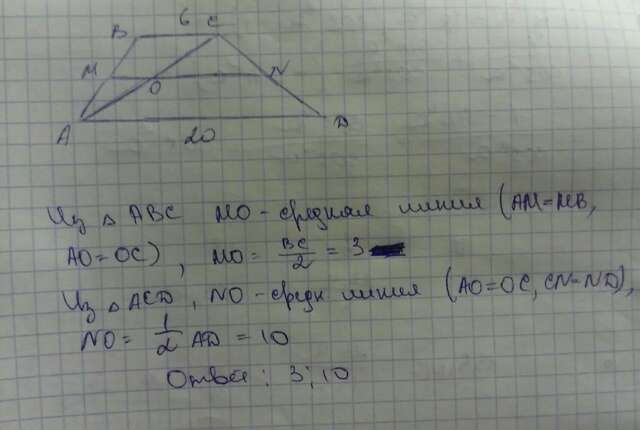 B 6 C
M O N
A 20 D
Из △ ABC MO - средняя линия (AM=MB,
AO=OC), MO = BC/2 = 3
Из △ ACD, NO - средн линия (AO=OC, CN=ND),
NO = 1/2 AD = 10
Ответ: 3; 10